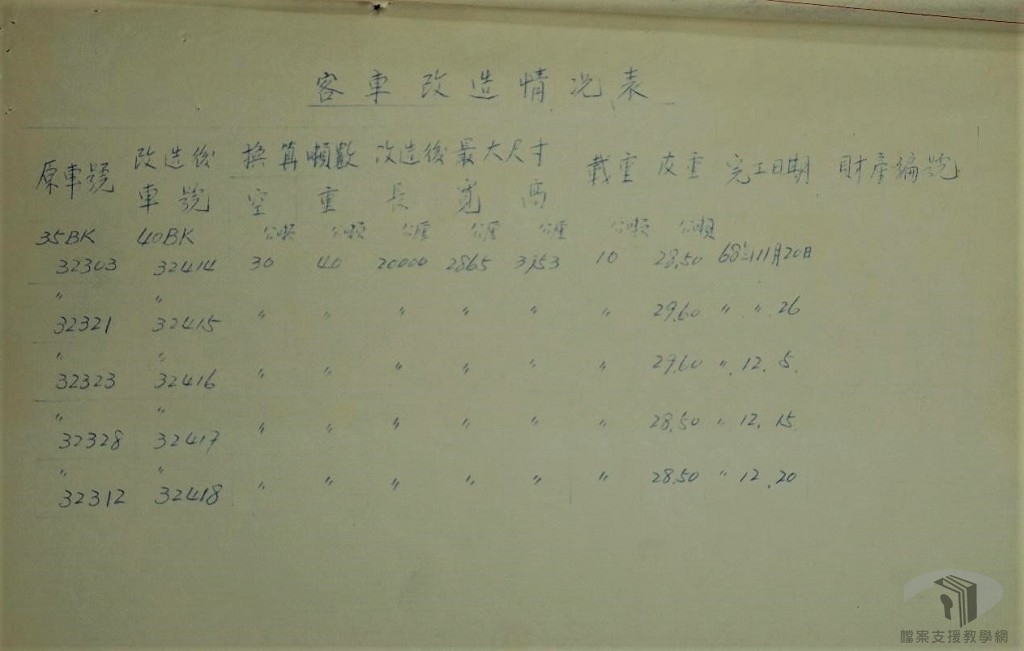 客車改造情況表
原車號 改造後車號 換算噸數 改造後最大尺寸 載重 皮重 完工日期 財產編號
空 重 長 寬 高
35BK 40BK 公噸 公噸 公厘 公厘 公厘 公噸 公噸
32303 32414 30 40 20000 2865 3953 10 28.50 68年11月20日
〃 〃
32321 32415 〃 〃 〃 〃 〃 〃 29.60 〃 〃 26
〃 〃
32323 32416 〃 〃 〃 〃 〃 〃 29.60 〃 12. 5.
〃 〃
32328 32417 〃 〃 〃 〃 〃 〃 28.50 〃 12. 15
〃 〃
32312 32418 〃 〃 〃 〃 〃 〃 28.50 〃 12.20
檔案支援教學網